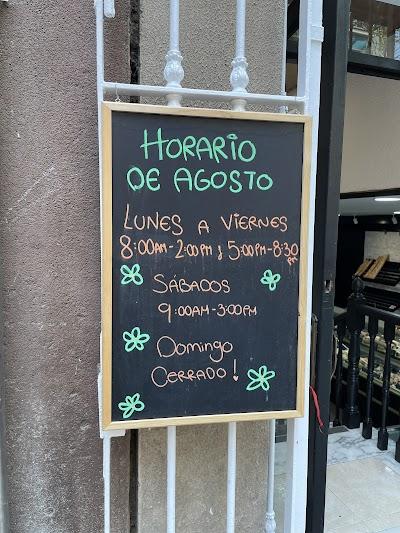 HORARIO
DE AGOSTO
LUNES A VIERNES
8:00AM-2:00PM y 5:00PM-8:30PM
SÁBADOS
9:00AM-3:00PM
DOMINGO
CERRADO!